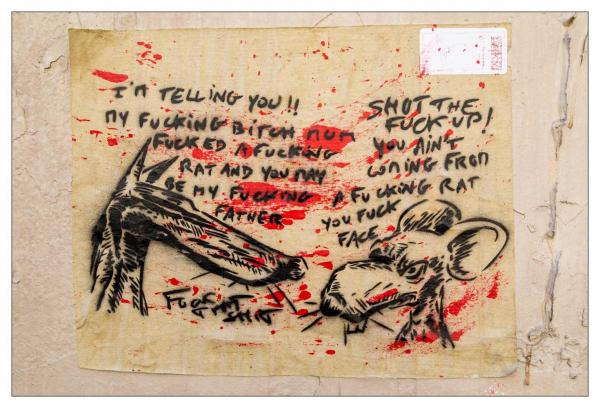 I'M TELLING YOU!!
MY FUCKING BITCH MUM
FUCKED A FUCKING
RAT AND YOU MAY
BE MY FUCKING
FATHER
SHOT THE
FUCK UP!
YOU AIN'T
COMING FROM
A FUCKING RAT
YOU FUCK
FACE
SHIT